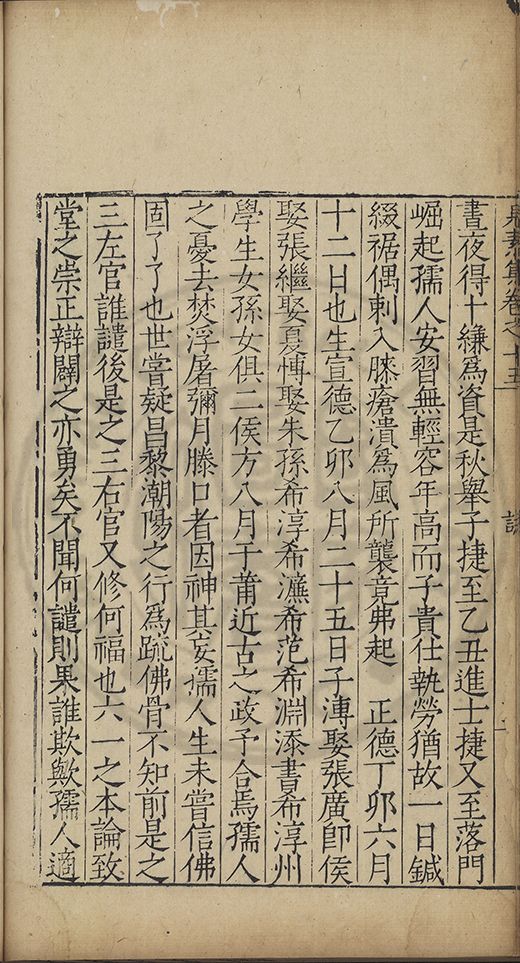 見素集卷之十五 誌
書夜得十縑爲資是秋舉子捷至乙丑進士捷又至落門
崛起孺人安習無輕容年高而子貴仕執勞猶故一日鍼
綴裾偶刺入膝瘡潰爲風所襲竟弗起　正德丁卯六月
十二日也生宣德乙卯八月二十五日子溥娶張廣即侯
娶張繼娶夏慱娶朱孫希淳希濂希范希淵添書希淳州
學生女孫女俱二侯方八月于莆近古之政予合焉孺人
之憂去焚浮屠彌月滕口者因神其妄孺人生未嘗信佛
固了了也世嘗疑昌黎潮陽之行爲疏佛骨不知前是之
三左官誰譴後是之三右官又修何福也六一之本論致
堂之崇正辯闢之亦勇矣不聞何譴則果誰欺歟孺人適